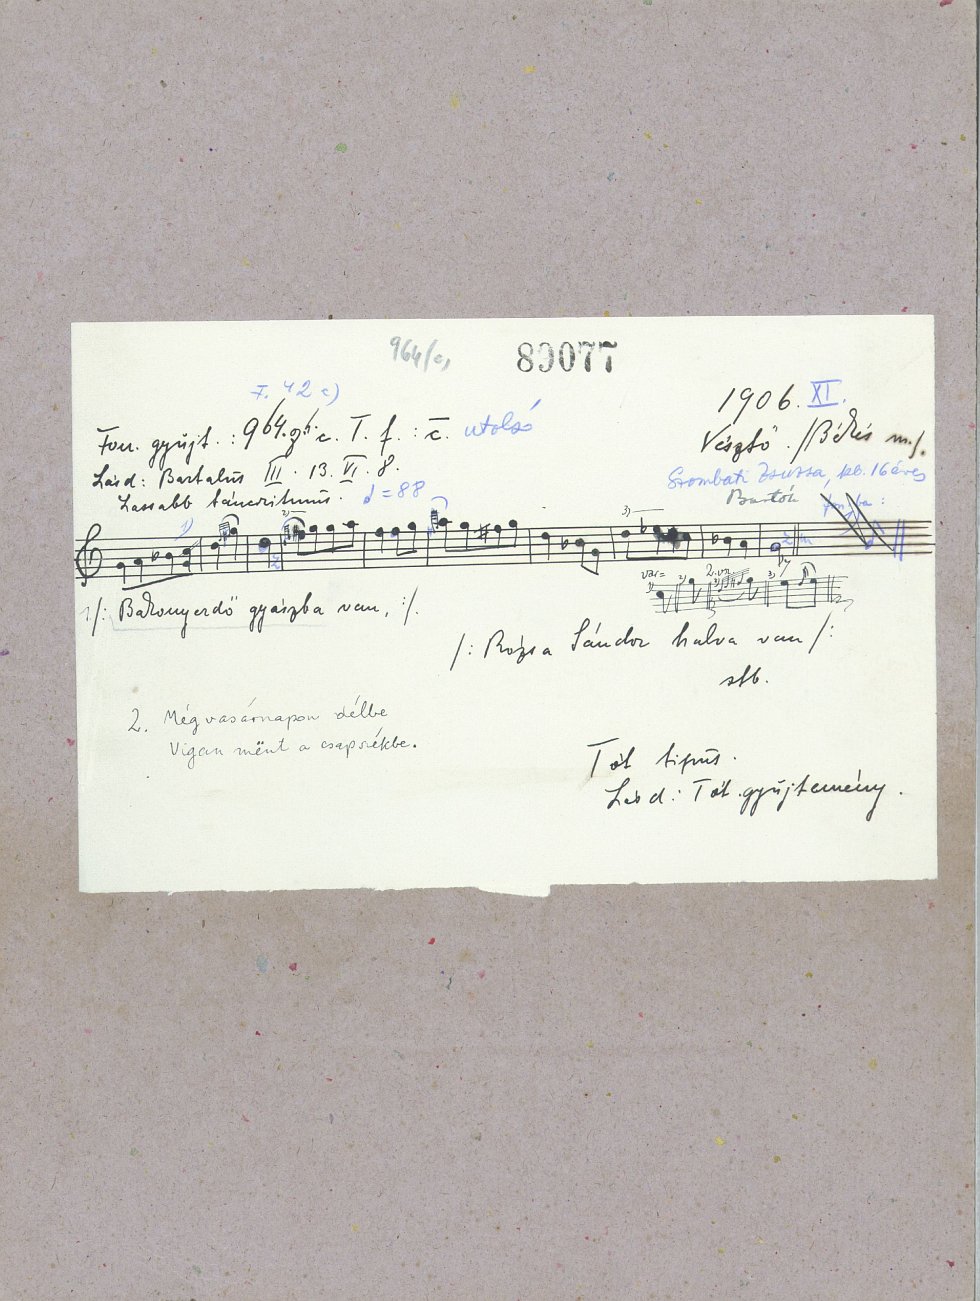 964/c,
89077
F. 42 c)
1906. XI.
Fon. gyűjt.: 964. c. I. f.: c. utolsó
Vésztő. /Békés m./.
Lásd: Bartalus III. 13. VI. 8.
Szombati Zsuzsa, kb. 16 éves
Lassabb táncritmus. ♩=88
Bartók
1)
2)
3)
var=
1)
2)
2. vsz
3)
1/: Bakonyerdő gyászba van, :/.
/: Rózsa Sándor halva van /:
stb.
2. Még vasárnapon délbe
Vigan mënt a csapszékbe.
Tót tipus.
Lásd: Tót gyűjtemény.